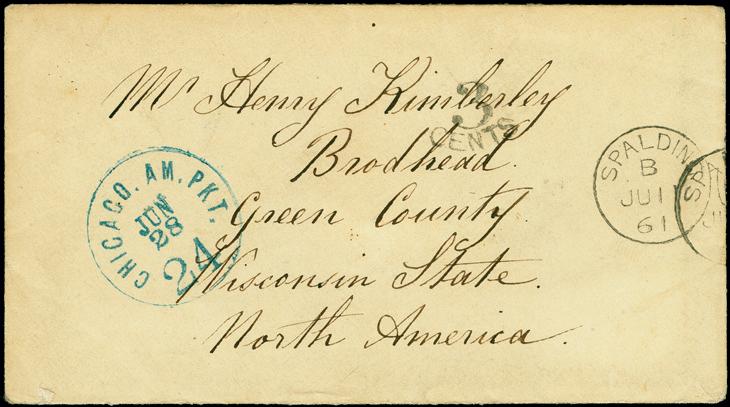 Mr Henry Kimberley
3
CENTS
Brodhead.
Green County
Wisconsin State.
North America.
CHICAGO. AM. PKT.
JUN
28
24
SPALDING
B
JU 11
61
SP